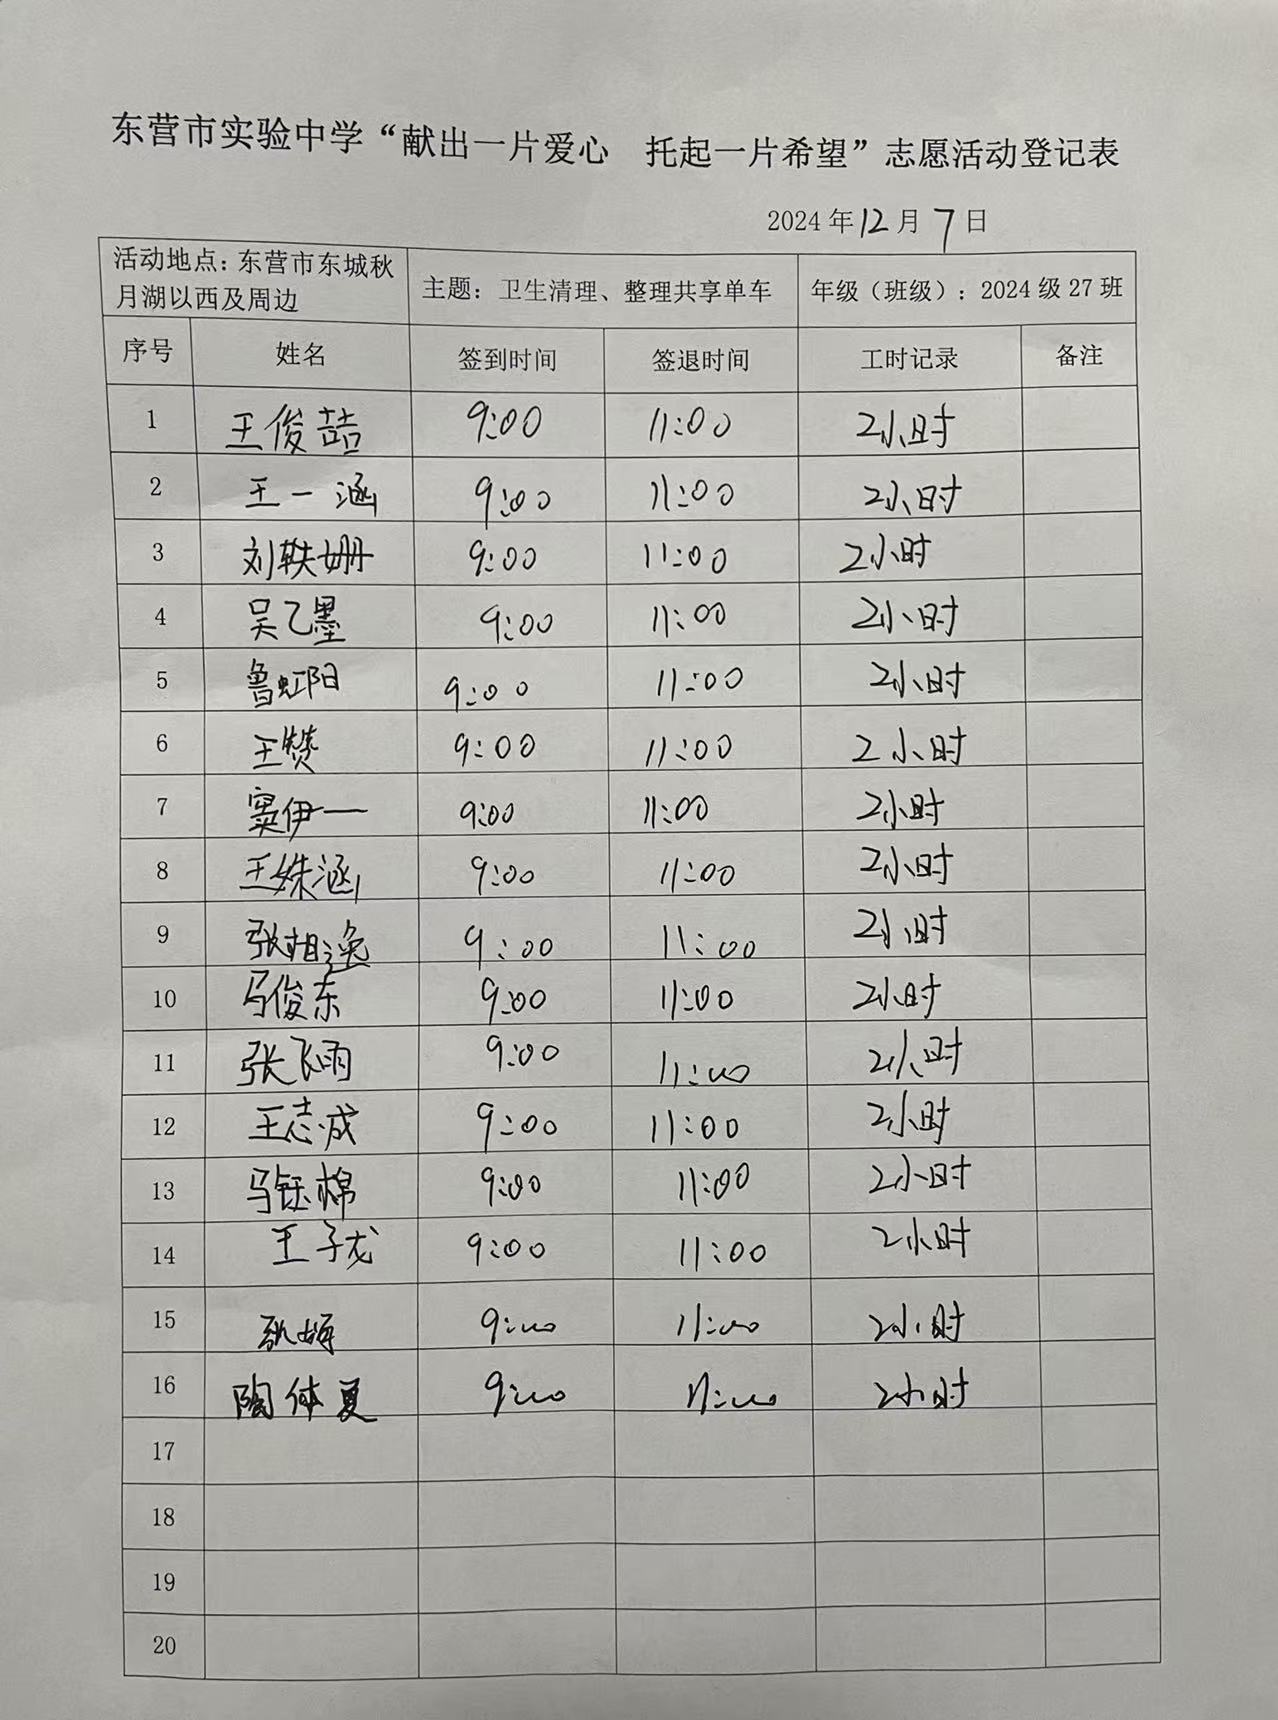 东营市实验中学“献出一片爱心 托起一片希望”志愿活动登记表
2024年12月7日
活动地点：东营市东城秋月湖以西及周边 主题：卫生清理、整理共享单车 年级（班级）：2024级27班
序号 姓名 签到时间 签退时间 工时记录 备注
1 王俊喆 9:00 11:00 2小时
2 王一涵 9:00 11:00 2小时
3 刘轶姗 9:00 11:00 2小时
4 吴乙墨 9:00 11:00 2小时
5 鲁虹阳 9:00 11:00 2小时
6 王赞 9:00 11:00 2小时
7 窦伊一 9:00 11:00 2小时
8 王姝涵 9:00 11:00 2小时
9 张相逸 9:00 11:00 2小时
10 马俊东 9:00 11:00 2小时
11 张飞雨 9:00 11:00 2小时
12 王志成 9:00 11:00 2小时
13 马钰棉 9:00 11:00 2小时
14 王子龙 9:00 11:00 2小时
15 9:00 11:00 2小时
16 陶体夏 9:00 11:00 2小时
17
18
19
20